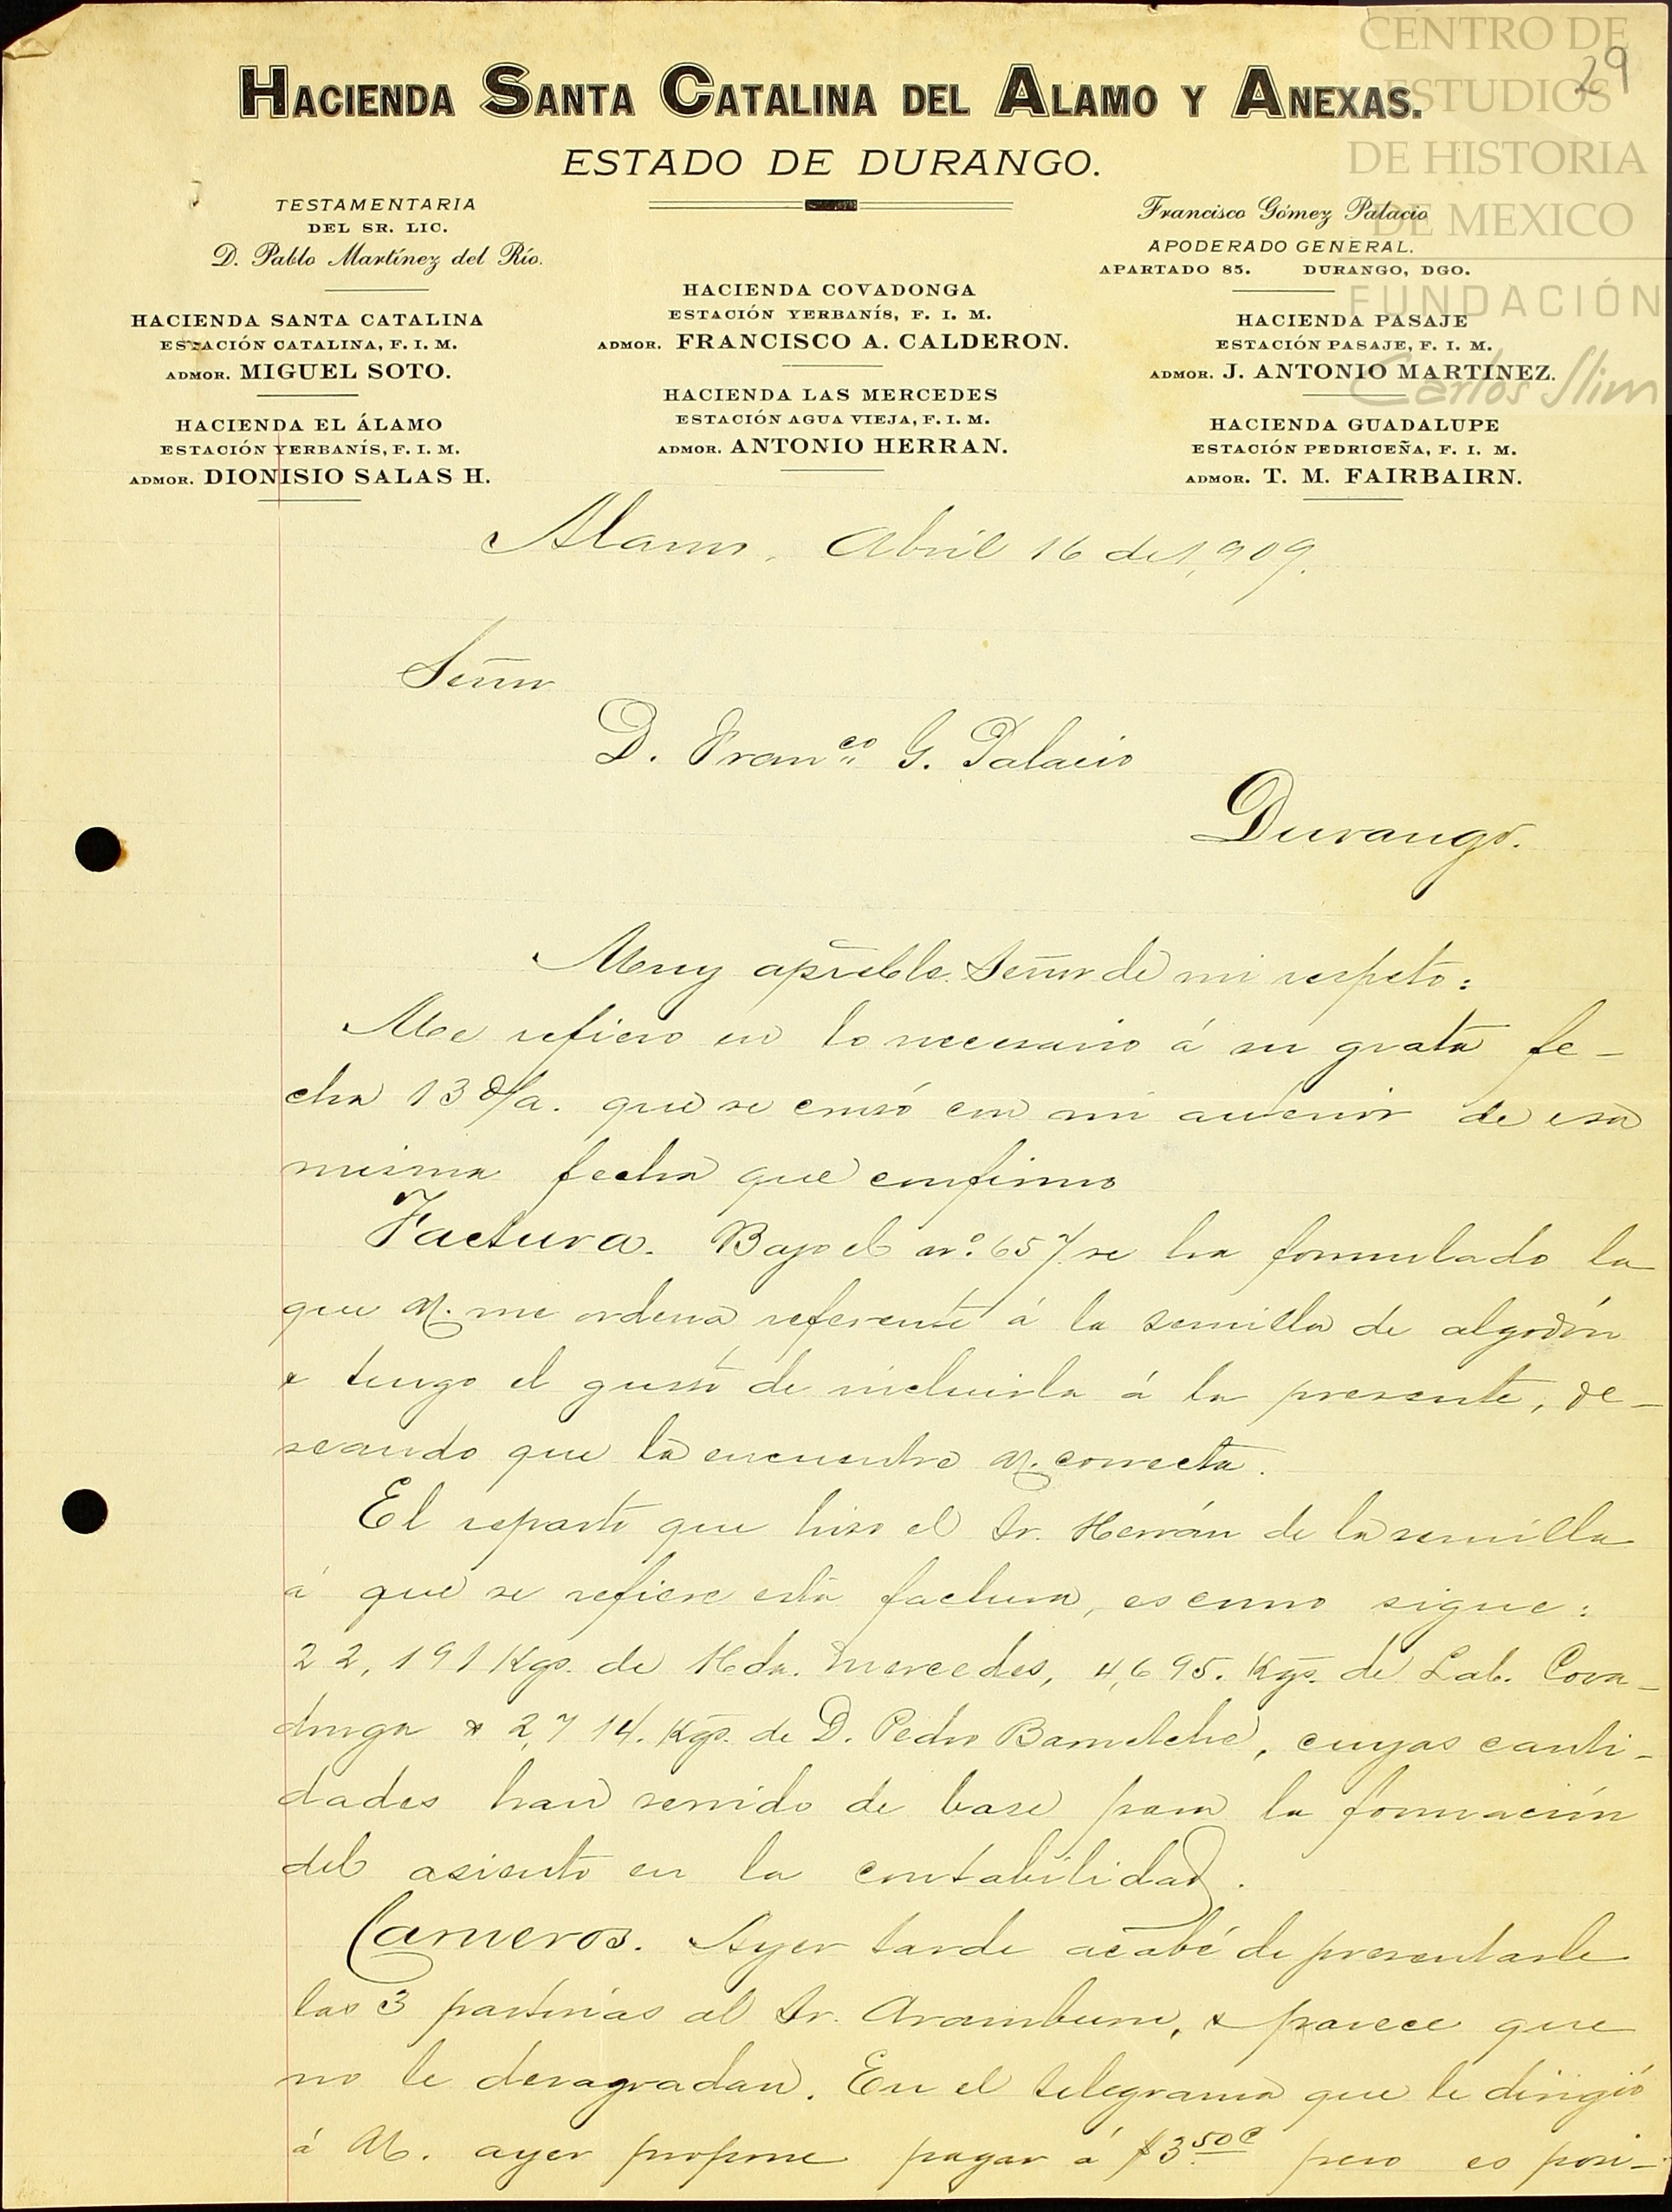 CENTRO DE
ESTUDIOS
DE HISTORIA
DE MEXICO
FUNDACIÓN
Carlos Slim
29
HACIENDA SANTA CATALINA DEL ALAMO Y ANEXAS.
ESTADO DE DURANGO.
TESTAMENTARIA
DEL SR. LIC.
D. Pablo Martínez del Río.
HACIENDA SANTA CATALINA
ESTACIÓN CATALINA, F. I. M.
ADMOR. MIGUEL SOTO.
HACIENDA EL ÁLAMO
ESTACIÓN YERBANÍS, F. I. M.
ADMOR. DIONISIO SALAS H.
HACIENDA COVADONGA
ESTACIÓN YERBANÍS, F. I. M.
ADMOR. FRANCISCO A. CALDERON.
HACIENDA LAS MERCEDES
ESTACIÓN AGUA VIEJA, F. I. M.
ADMOR. ANTONIO HERRAN.
Francisco Gómez Palacio
APODERADO GENERAL.
APARTADO 85. DURANGO, DGO.
HACIENDA PASAJE
ESTACIÓN PASAJE, F. I. M.
ADMOR. J. ANTONIO MARTINEZ.
HACIENDA GUADALUPE
ESTACIÓN PEDRICEÑA, F. I. M.
ADMOR. T. M. FAIRBAIRN.
Alamo, Abril 16 de 1,909.
Señor
D. Franco. G. Palacio
Durango.
Muy apreble. Señor de mi respeto:
Me refiero en lo necesario á su grata fe-
cha 13 d/a. que se cruzó con mi anterior de esa
misma fecha que confirmo
Factura. Bajo el no. 657 se ha formulado la
que U. me ordena referente á la semilla de algodón
& tengo el gusto de incluirla á la presente, de-
seando que la encuentre U. correcta.
El reparto que hizo el Sr. Herrán de la semilla
á que se refiere esta factura, es como sigue:
22,191 Kgs. de Hda. Mercedes, 4,695. Kgs. de Lab. Cova-
donga & 2,714. Kgs. de D. Pedro Barnetche, cuyas canti-
dades han servido de base para la formación
del asiento en la contabilidad.
Carneros. Ayer tarde acabé de presentarle
las 3 partidas al Sr. Aramburu, & parece que
no le desagradan. En el telegrama que le dirigió
á U. ayer propone pagar á $3.50c pero es posi-